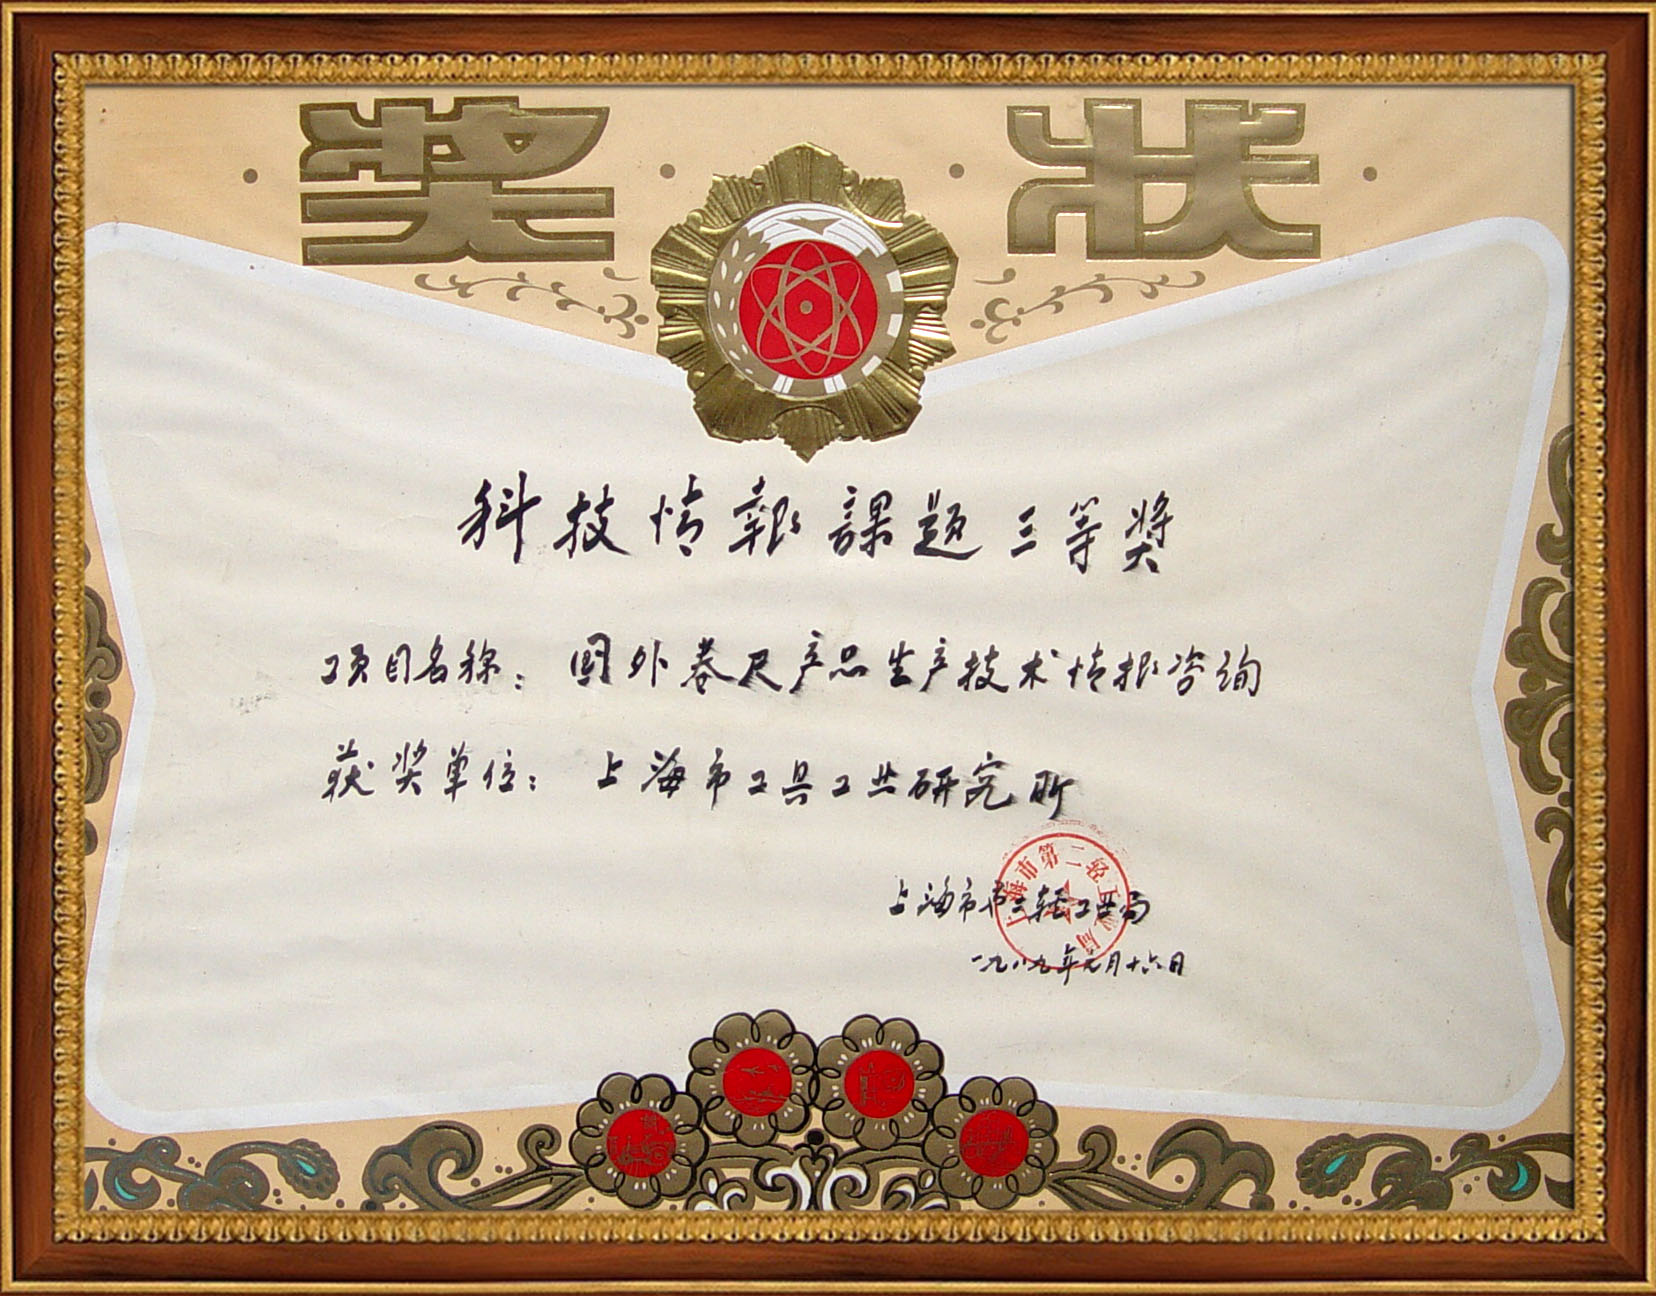 奖状
科技情報課题三等奖
项目名称：国外卷尺产品生产技术情报咨询
获奖单位：上海市工具工业研究所
上海市第二轻工业局
上海市第二轻工业局
一九八九年元月十六日